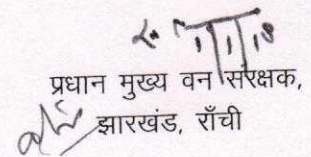 प्रधान मुख्य वन संरक्षक,
झारखंड, राँची